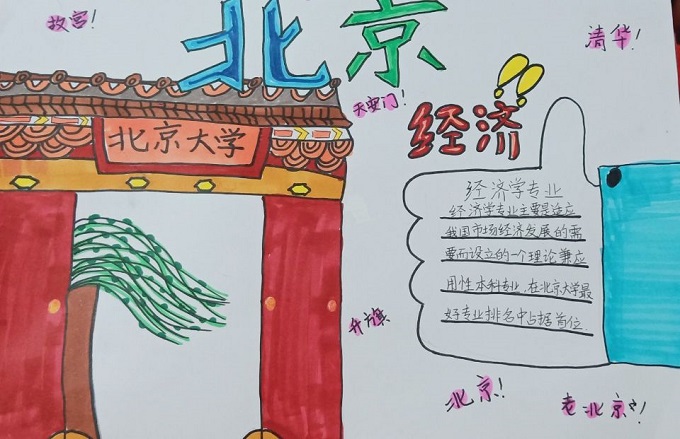 北京
故宫！
清华！
天安门！
经济！！
北京大学
经济学专业
经济学专业主要是适应
我国市场经济发展的需
要而设立的一个理论兼应
用性本科专业,在北京大学最
好专业排名中占据首位
升旗
北京！
老北京！